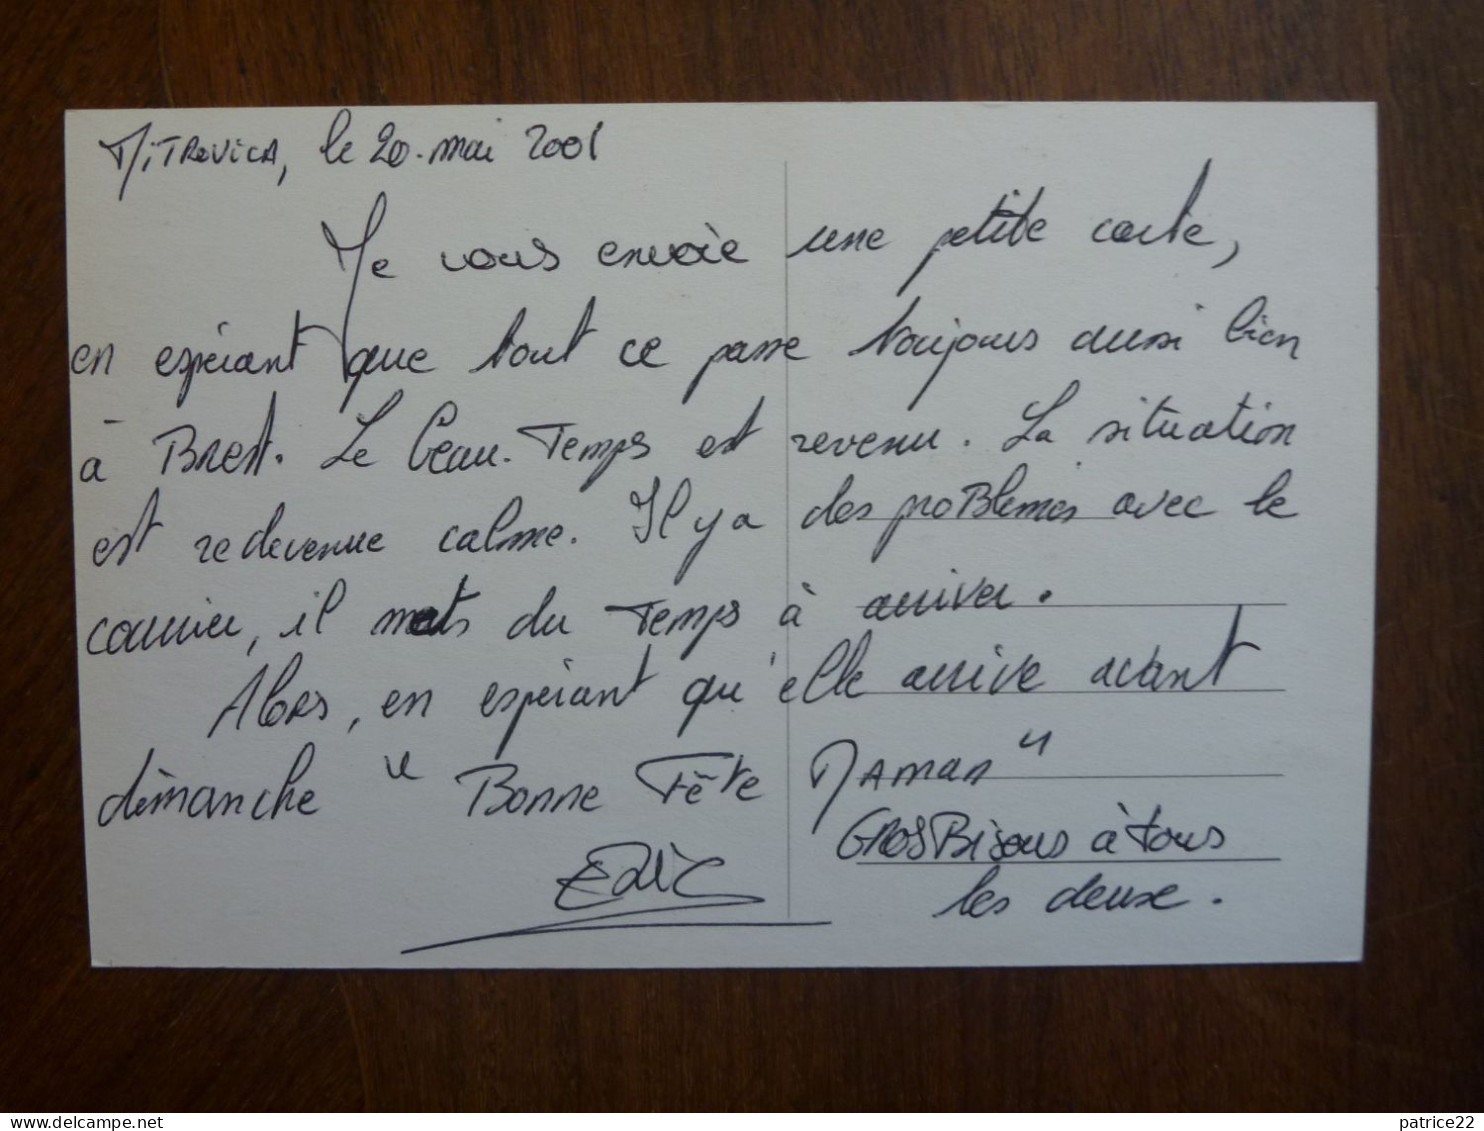 MITROVICA, le 20.mai 2001
Je vous envoie une petite carte,
en espérant que tout ce passe toujours aussi bien
à Brest. Le beau-Temps est revenu. La situation
est redevenue calme. Il y a des problèmes avec le
courrier, il mets du temps à arriver.
Alors, en espérant qu'elle arrive avant
dimanche " Bonne Fête MAMAN "
GROS Bisous à tous
les deux.
Eric
patrice22